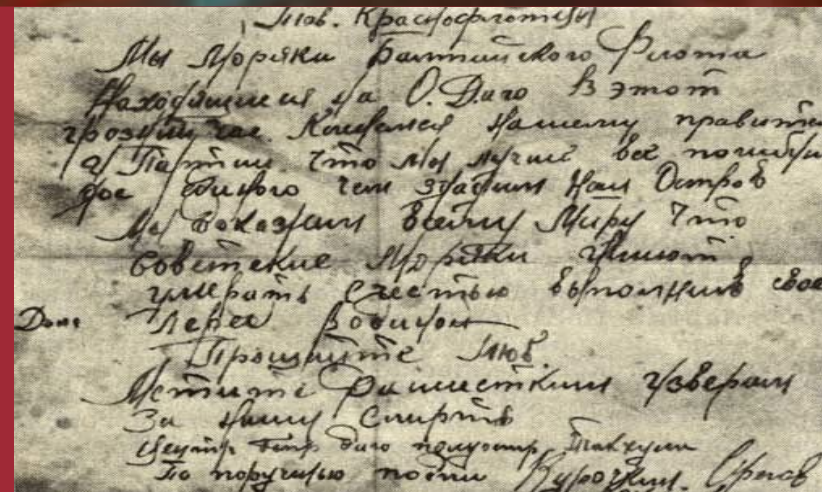 Тов. Краснофлотцы
Мы Моряки Балтийского Флота
Находящиеся на О. Даго В этот
грозный час Клянемся Нашему правите
и Партии что мы лучше все погибне
до единого чем здадим Наш Остров
Мы докажем Всему Миру что
Советские Моряки умеют
умирать с честью выполнив свое
Долг Перед Родиной
Прощайте Тов.
Мстите Фашистким Изверам
За нашу Смерть
даго полуостр Тахкуна
По поручению Курочкин.